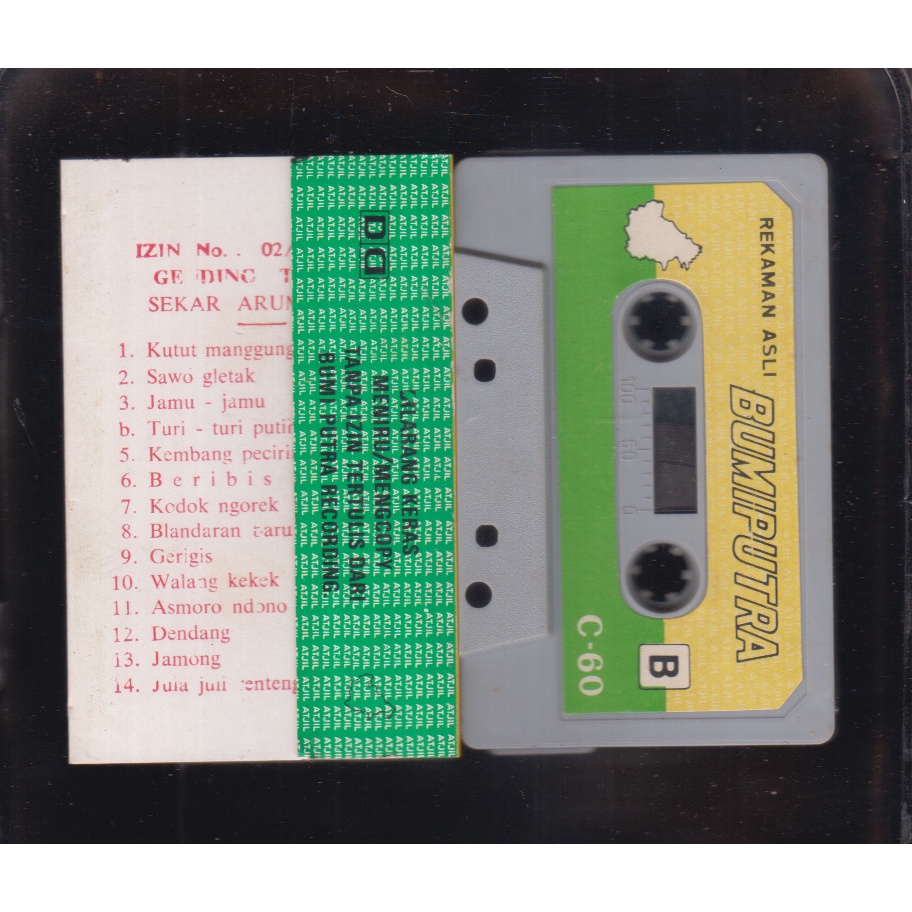 IZIN No. . 02/
GE DING T
SEKAR ARUM
1. Kutut manggung
2. Sawo gletak
3. Jamu - jamu
b. Turi - turi putih
5. Kembang peciri
6. B e r i b i s
7. Kodok ngorek
8. Blandaran baru
9. Gerigis
10. Walang kekek
11. Asmoro ndono
12. Dendang
13. Jamong
14. Jula juli
DILARANG KERAS
MENIRU/MENGCOPY
TANPA IZIN TERTULIS DARI
BUMI PUTRA RECORDING.
ATJIL
REKAMAN ASLI
BUMIPUTRA
100 50 0
B
C-60